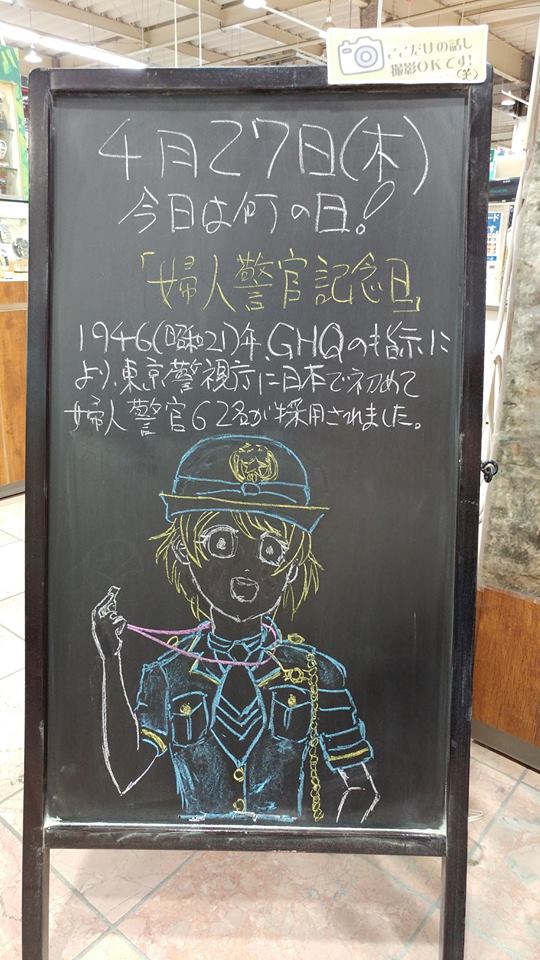 ここだけの話し
撮影OKです!
(笑)
4月27日(木)
今日は何の日!
「婦人警官記念日」
1946(昭和21)年、GHQの指示に
より、東京警視庁に日本で初めて
婦人警官62名が採用されました。